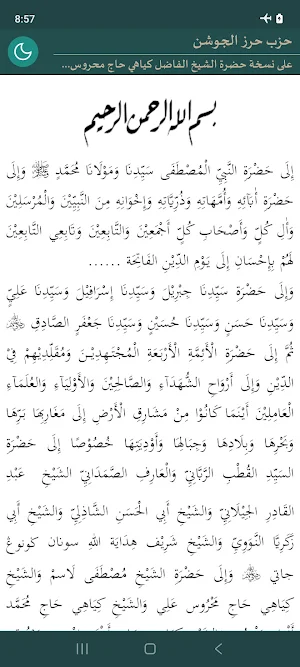 8:57
حزب حرز الجوشن
على نسخة حضرة الشيخ الفاضل كياهي حاج محروس...
بسم الله الرحمن الرحيم
إِلَى حَضْرَةِ النَّبِيِّ الْمُصْطَفَى سَيِّدِنَا وَمَوْلَانَا مُحَمَّدٍ ﷺ وَإِلَى
حَضْرَةِ أٰبَآئِهِ وَأُمَّهَاتِهِ وَذُرِّيَّاتِهِ وَإِخْوَانِهِ مِنَ النَّبِيِّيْنَ وَالْمُرْسَلِيْنَ
وَأٰلِ كُلٍّ وَأَصْحَابِ كُلٍّ أَجْمَعِيْنَ وَالتَّابِعِيْنَ وَتَابِعِي التَّابِعِيْنَ
لَهُمْ بِإِحْسَانٍ إِلَى يَوْمِ الدِّيْنِ الْفَاتِحَة ......
وَإِلَى حَضْرَةِ سَيِّدِنَا جِبْرِيْلَ وَسَيِّدِنَا إِسْرَافِيْلَ وَسَيِّدِنَا عَلِيٍّ
وَسَيِّدِنَا حَسَنٍ وَسَيِّدِنَا حُسَيْنٍ وَسَيِّدِنَا جَعْفَرٍ الصَّادِقِ
ثُمَّ إِلَى حَضْرَةِ الْأَئِمَّةِ الْأَرْبَعَةِ الْمُجْتَهِدِيْنَ وَمُقَلِّدِيْهِمْ فِيْ
الدِّيْنِ وَإِلَى أَرْوَاحِ الشُّهَدَآءِ وَالصَّالِحِيْنَ وَالْأَوْلِيَآءِ وَالْعُلَمَآءِ
الْعَامِلِيْنَ أَيْنَمَا كَانُوْا مِنْ مَشَارِقِ الْأَرْضِ إِلَى مَغَارِبِهَا بَرِّهَا
وَبَحْرِهَا وَبِلَادِهَا وَجِبَالِهَا وَأَوْدِيَتِهَا خُصُوْصًا إِلَى حَضْرَةِ
السَّيِّدِ الْقُطْبِ الرَّبَّانِيِّ وَالْعَارِفِ الصَّمَدَانِيِّ الشَّيْخِ عَبْدِ
الْقَادِرِ الْجِيْلَانِيِّ وَالشَّيْخِ أَبِي الْحَسَنِ الشَّاذِلِيِّ وَالشَّيْخِ أَبِي
زَكَرِيَّا النَّوَوِيِّ وَالشَّيْخِ شَرِيْف هِدَايَة اللهِ سونان كونوڠ
جاتي وَإِلَى حَضْرَةِ الشَّيْخِ مُصْطَفَى لَاسَمْ وَالشَّيْخِ
كِيَاهِي حَاج مَحْرُوْس عَلِي وَالشَّيْخِ كِيَاهِي حَاج مُحَمَّد